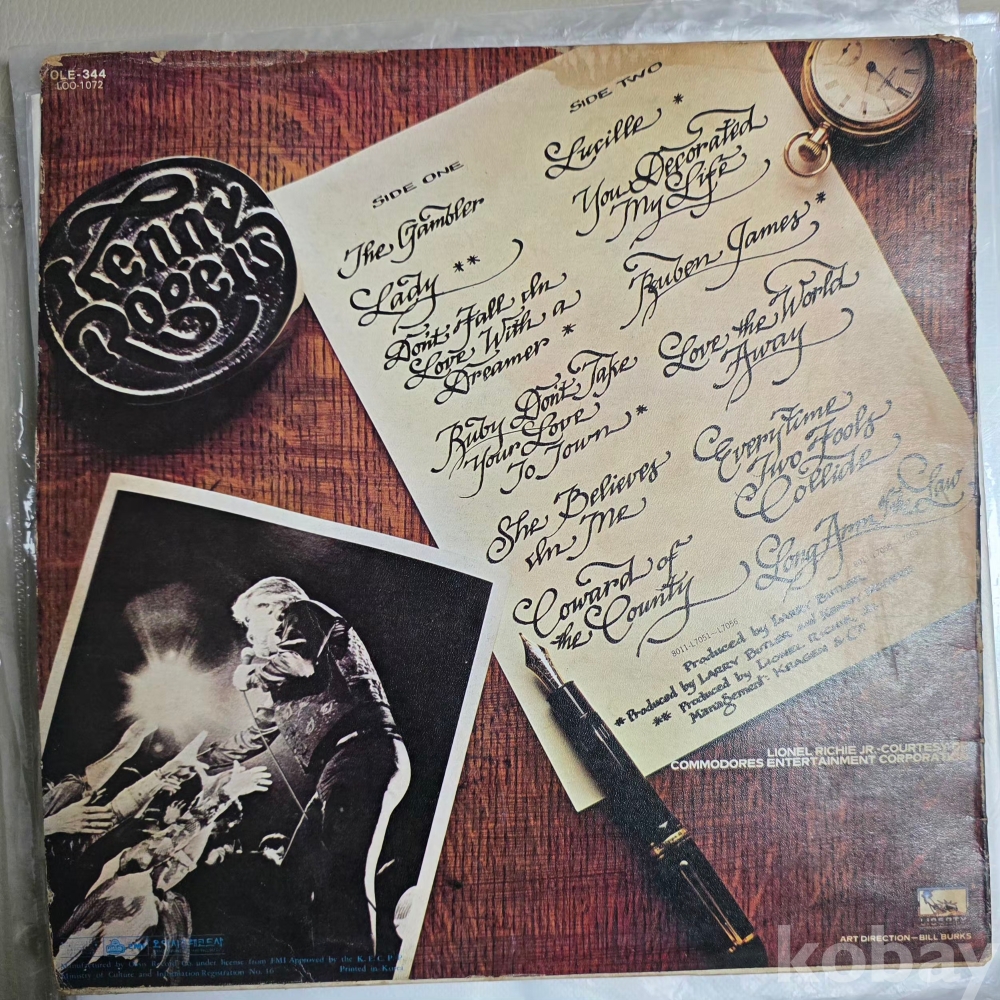 OLE-344
LOO-1072
Kenny
Rogers
SIDE ONE
The Gambler
Lady **
Don't Fall In
Love With a
Dreamer *
Ruby Don't Take
Your Love
To Town *
She Believes
In Me
Coward of
the County
SIDE TWO
Lucille *
You Decorated
My Life
Ruben James *
Love the World
Away
Everytime
Two Fools
Collide
Long Arm of the Law
8011-L7051-L7056
Produced by LARRY BUTLER
* Produced by LARRY BUTLER AND KENNY ROGERS
** Produced by LIONEL RICHIE, JR.
Management: KRAGEN & CO.
LIONEL RICHIE JR.-COURTESY OF
COMMODORES ENTERTAINMENT CORPORATION
LIBERTY
ART DIRECTION-BILL BURKS
under license from EMI Approved by the K.
Ministry of Culture and Information Registration No. 16
Printed in Korea
kobay